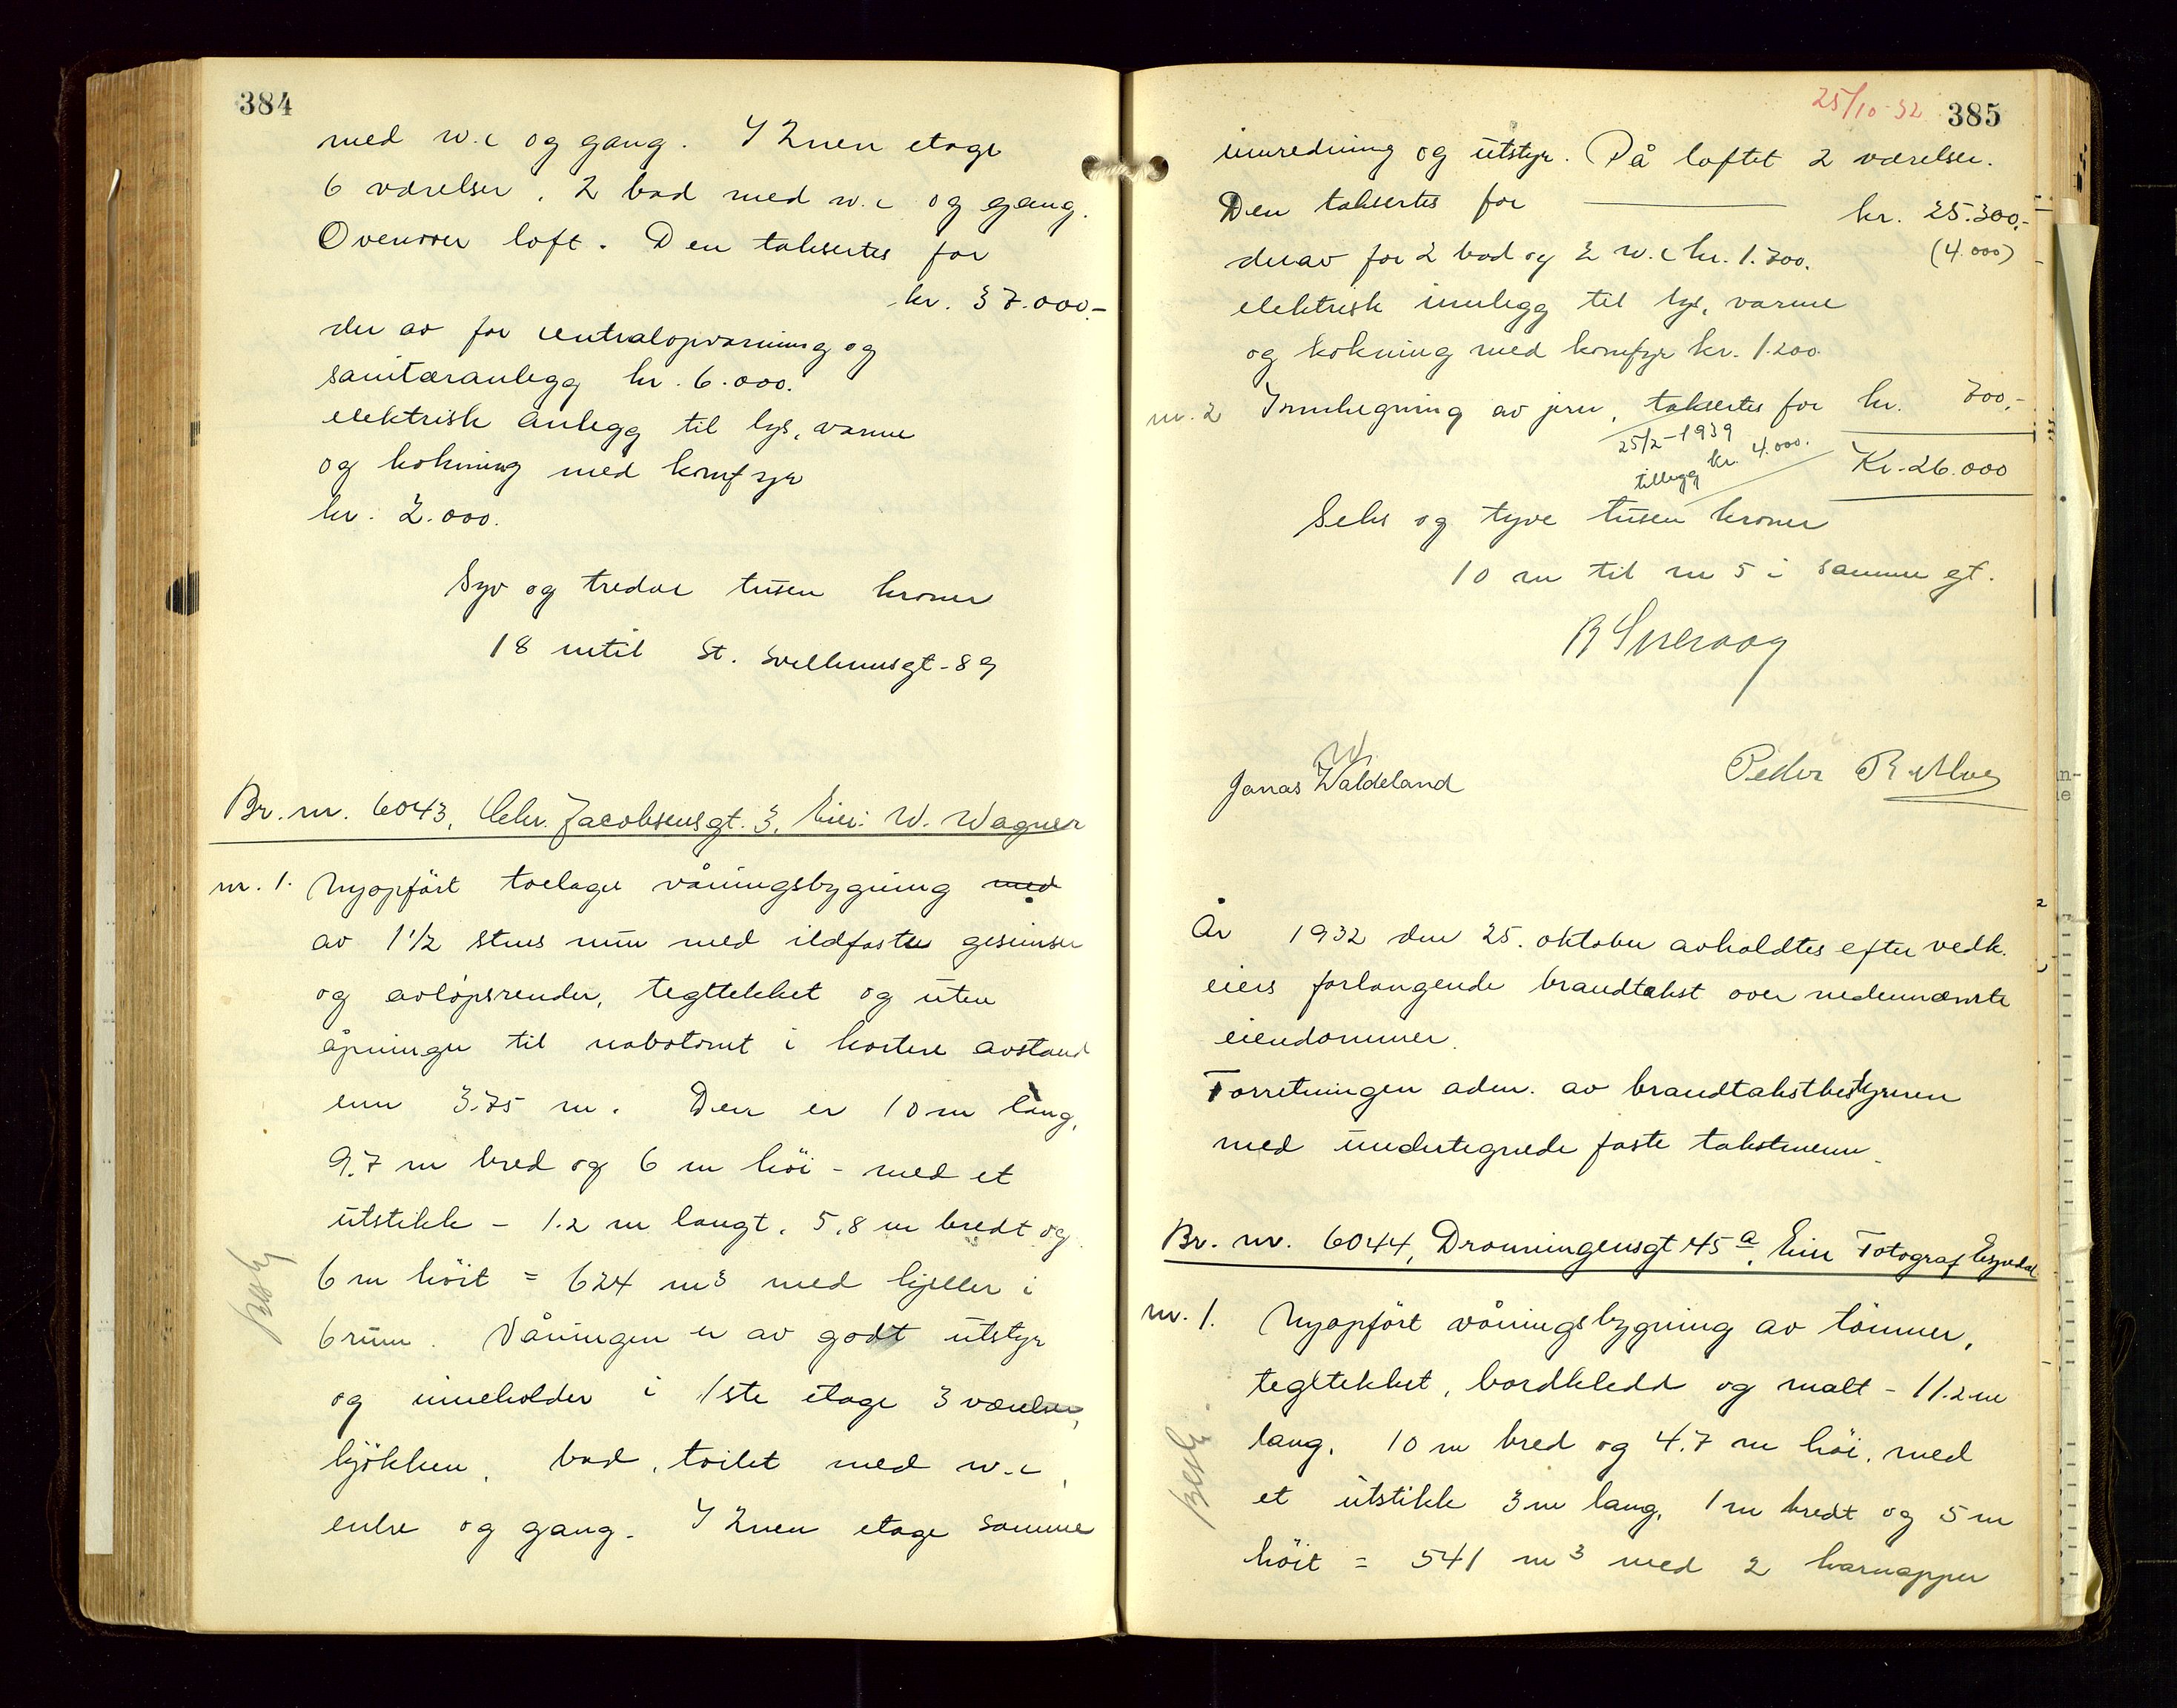 384
med w.c og gang. I 2nen etage
6 værelser, 2 bad med w.c og gang.
Ovenover loft. Den taksertes for
kr. 37.000.-
der av for centralopvarming og
sanitæranlegg kr. 6.000.
elektrisk anlegg til lys, varme
og kokning med komfyr
kr. 2.000.
Syv og tredve tusen kroner
18 m til St. Svithunsgt. 89
Br. nr. 6043, Chr. Jacobsensgt. 3, Eier: W. Wagner
nr. 1. Nyopført toetages våningsbygning med
av 1 1/2 stens mur med ildfaste gesimser
og avløpsrender, tegltekket og uten
åpninger til nabotomt i kortere avstand
enn 3.75 m. Den er 10 m lang,
9.7 m bred og 6 m høi - med et
utstikk - 1.2 m langt, 5,8 m bredt og
6 m höit = 624 m3 med kjeller i
6 rum. Våningen er av godt utstyr
og inneholder i 1ste etage 3 værelser,
kjøkken, bad, toilet med w.c,
entre og gang. I 2nen etage samme
25/10-32 385
innredning og utstyr. På loftet 2 værelser.
Den taksertes for kr. 25.300.-
derav for 2 bad og 2 w.c kr. 1.700. (4.000)
elektrisk innlegg til lys, varme
og kokning med komfyr kr. 1.200.
nr. 2 Innhegning av jern, taksertes for kr. 700,-
25/2-1939
tillegg kr. 4.000.
Kr. 26.000
Seks og tyve tusen kroner
10 m til nr 5 i samme gt.
W.
Jonas Waldeland
År 1932 den 25. oktober avholdtes efter vedk.
eiers forlangende brandtakst over nedennævnte
eiendommer.
Forretningen adm. av brandtakstbestyreren
med undertegnede faste takstmenn.
Br. nr. 6044, Dronningensgt 45 a, Eier Fotograf Espedal
nr. 1. Nyopført våningsbygning av tømmer,
tegltekket, bordkledd og malt - 11.2 m
lang, 10 m bred og 4.7 m höi, med
et utstikk 3 m lang, 1 m bredt og 5 m
höit = 541 m3 med 2 karnapper